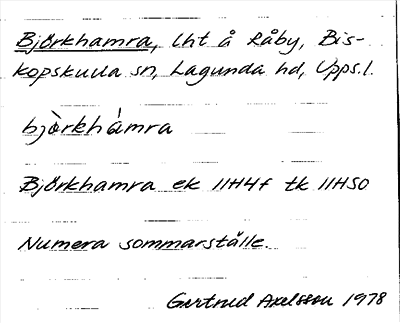 Björkhamra, lht å Råby, Bis-
kopskulla sn, Lagunda hd, Upps.l.
bjò̀rkhàmra
Björkhamra ek 11H4f tk 11HSO
Numera sommarställe.
Gertrud Axelsson 1978